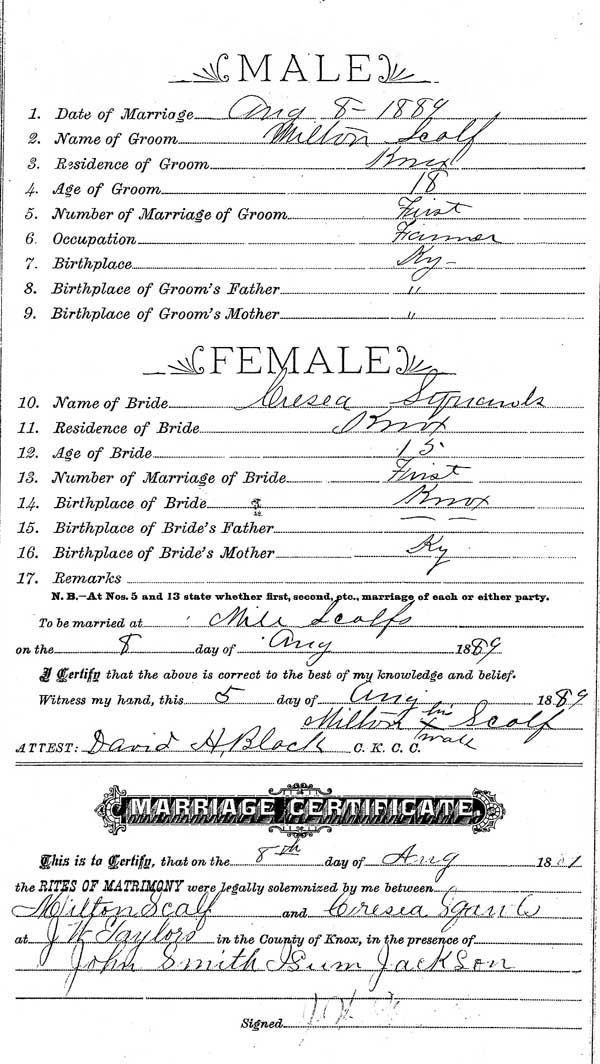 MALE
1. Date of Marriage Aug 8- 1889
2. Name of Groom Milton Scalf
3. Residence of Groom Knox
4. Age of Groom 18
5. Number of Marriage of Groom First
6. Occupation Farmer
7. Birthplace Ky-
8. Birthplace of Groom's Father "
9. Birthplace of Groom's Mother "
FEMALE
10. Name of Bride Cresea
11. Residence of Bride Knox
12. Age of Bride 15
13. Number of Marriage of Bride First
14. Birthplace of Bride Knox
15. Birthplace of Bride's Father — —
16. Birthplace of Bride's Mother Ky
17. Remarks
N. B.—At Nos. 5 and 13 state whether first, second, etc., marriage of each or either party.
To be married at Scalfs
on the 8 day of Aug 1889
I Certify that the above is correct to the best of my knowledge and belief.
Witness my hand, this 5 day of Aug 1889
Milton his x mark Scalf
ATTEST: David H, Black C. K. C. C.
MARRIAGE CERTIFICATE
This is to Certify, that on the 8th day of Aug 18
the RITES OF MATRIMONY were legally solemnized by me between
Milton Scalf and Cresea
at J W Taylors in the County of Knox, in the presence of
John Smith Jackson
Signed